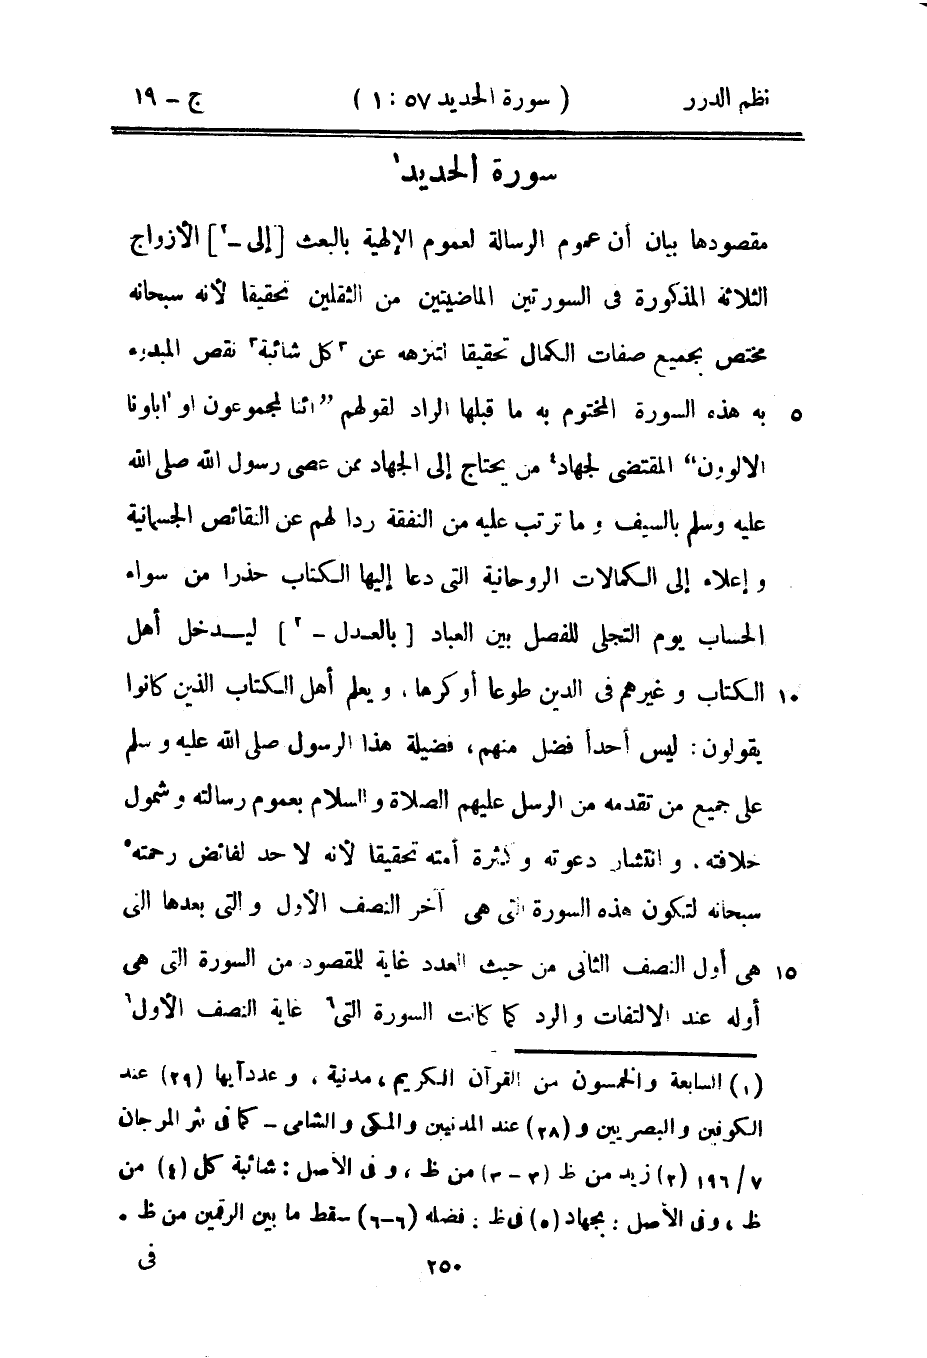 نظم الدرر ( سورة الحديد ٥٧ : ١ ) ج - ١٩
سورة الحديد١
مقصودها بيان أن عموم الرسالة لعموم الإلهية بالبعث [ إلى -٢ ] الأزواج
الثلاثة المذكورة فى السورتين الماضيتين من الثقلين تحقيقا لأنه سبحانه
مختص بجميع صفات الكمال تحقيقا لتنزهه عن ٣كل شائبة٣ نقص المبدوء
٥ به هذه السورة المختوم به ما قبلها الراد لقولهم ”ائنا لمجموعون او اباونا
الاولون“ المقتضى لجهاد٤ من يحتاج إلى الجهاد ممن عصى رسول الله صلى الله
عليه وسلم بالسيف و ما ترتب عليه من النفقة ردا لهم عن النقائص الجسمانية
و إعلاء إلى الكمالات الروحانية التى دعا إليها الكتاب حذرا من سواء
الحساب يوم التجلى للفصل بين العباد [ بالعدل -٢ ] ليدخل أهل
١٠ الكتاب و غيرهم فى الدين طوعا أو كرها، و يعلم أهل الكتاب الذين كانوا
يقولون : ليس أحدأ فضل منهم، فضيلة هذا الرسول صلى الله عليه و سلم
على جميع من تقدمه من الرسل عليهم الصلاة و السلام بعموم رسالته و شمول
خلافته، و انتشار دعوته و كثرة أمته تحقيقا لأنه لا حد لفائض رحمته٥
سبحانه لتكون هذه السورة التى هى آخر النصف الأول و التى بعدها التى
١٥ هى أول النصف الثانى من حيث العدد غاية للمقصود من السورة التى هى
أوله عند الالتفات و الرد كما كانت السورة التى٦ غاية النصف الأول٦
(١) السابعة والخمسون من القرآن الكريم، مدنية ، و عددآيها (٢٩) عند
الكوفيين و البصريين و (٢٨) عند المدنيين والمكى و الشامى - كما فى نثر المرجان
٧/ ١٩٦ (٢) زيد من ظ (٣ - ٣) من ظ ، و فى الأصل : شائبة كل (٤) من
ظ ، وفى الأصل : بجهاد (٥) فى ظ : فضله (٦-٦) سقط ما بين الرقمين من ظ .
٢٥٠ فى